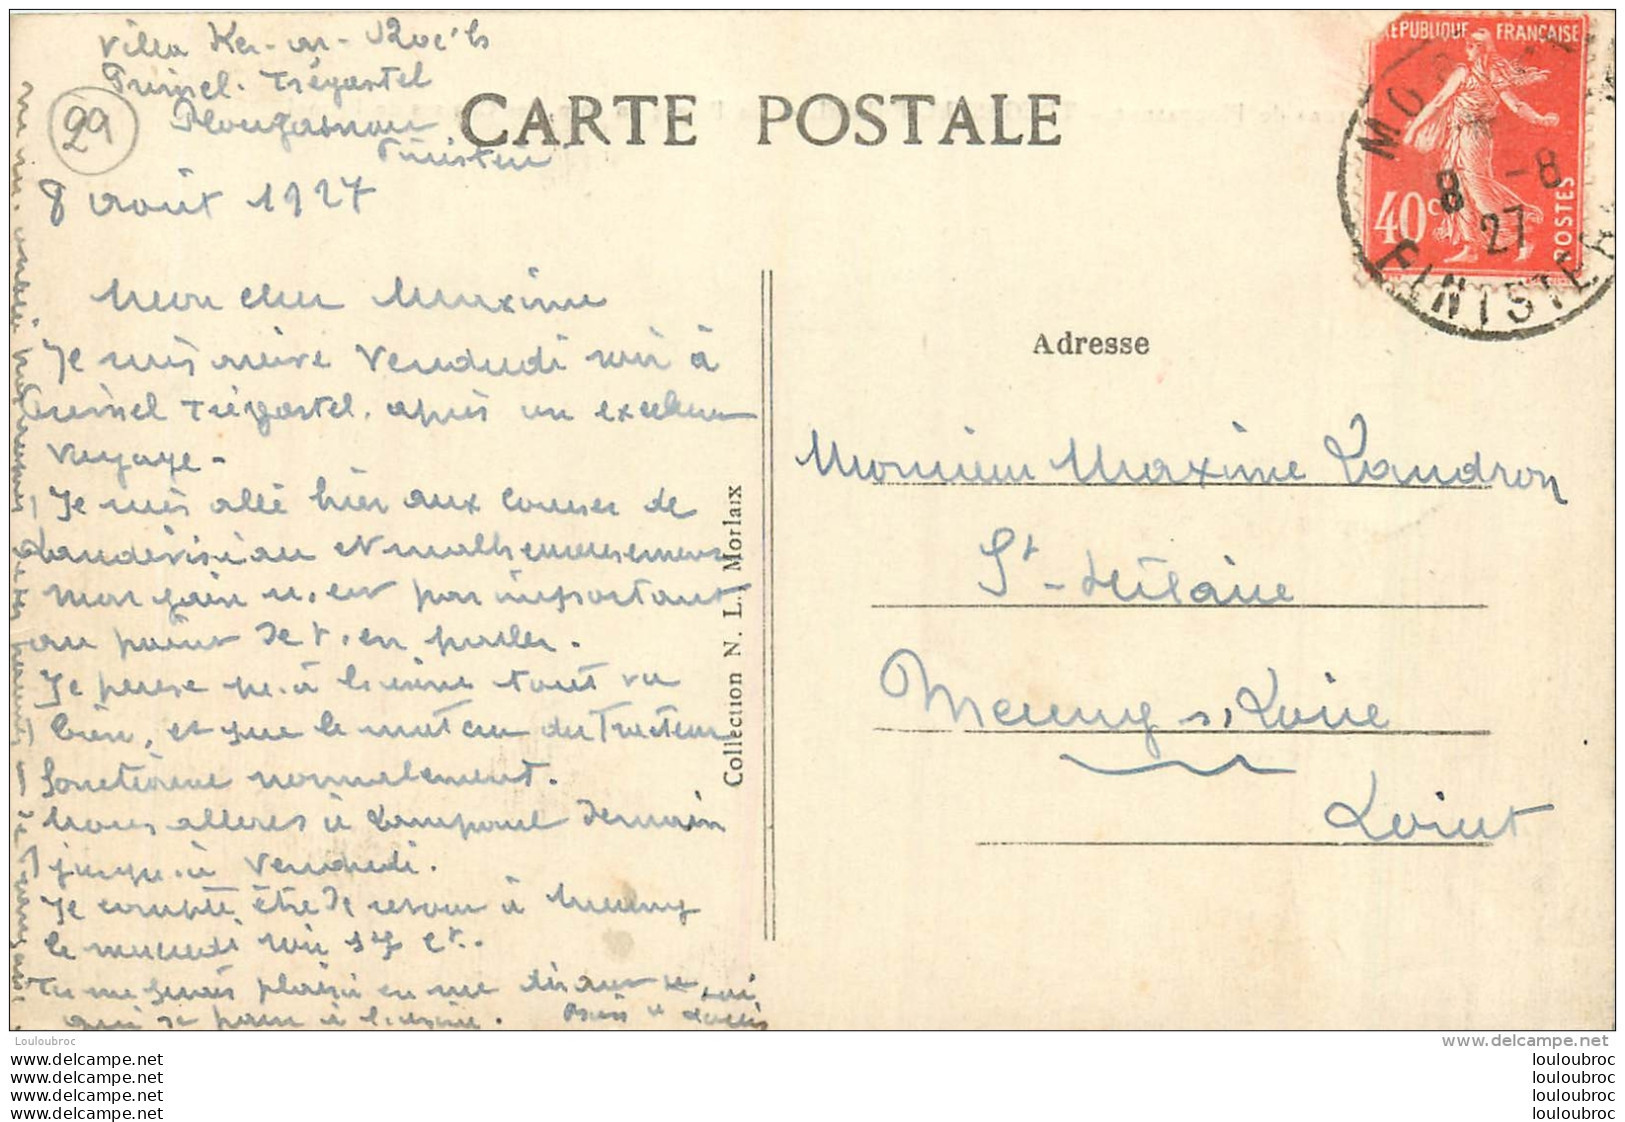 Villa Ker-ar-Roc'h
Primel-Trégastel
Plougasnou
Finistère
29
8 août 1927
CARTE POSTALE
REPUBLIQUE FRANÇAISE
40 c
POSTES
8 -8
27
FINISTERE
Mon cher Maxime
Je suis arrivé Vendredi soir à
Primel Trégastel, après un excellent
voyage -
Je suis allé hier aux courses de
Landivisiau et malheureusement
mon gain n'est pas important
au point de t'en parler.
Je pense qu'à l'usine tout va
bien, et que le moteur du Tracteur
fonctionne normalement.
Nous allons à Lampaul demain
jusqu'à Vendredi.
Je compte être de retour à Meung
le mercredi soir 17 ct.
Tu me feras plaisir en me disant ce
qui se passe à l'usine.
Adresse
Monsieur Maxime Landron
St-Hilaire
Meung s/ Loire
Loiret
Collection N. L. Morlaix
Louloubroc
www.delcampe.net
www.delcampe.net
www.delcampe.net
www.delcampe.net
www.delcampe.net
louloubroc
louloubroc
louloubroc
louloubroc